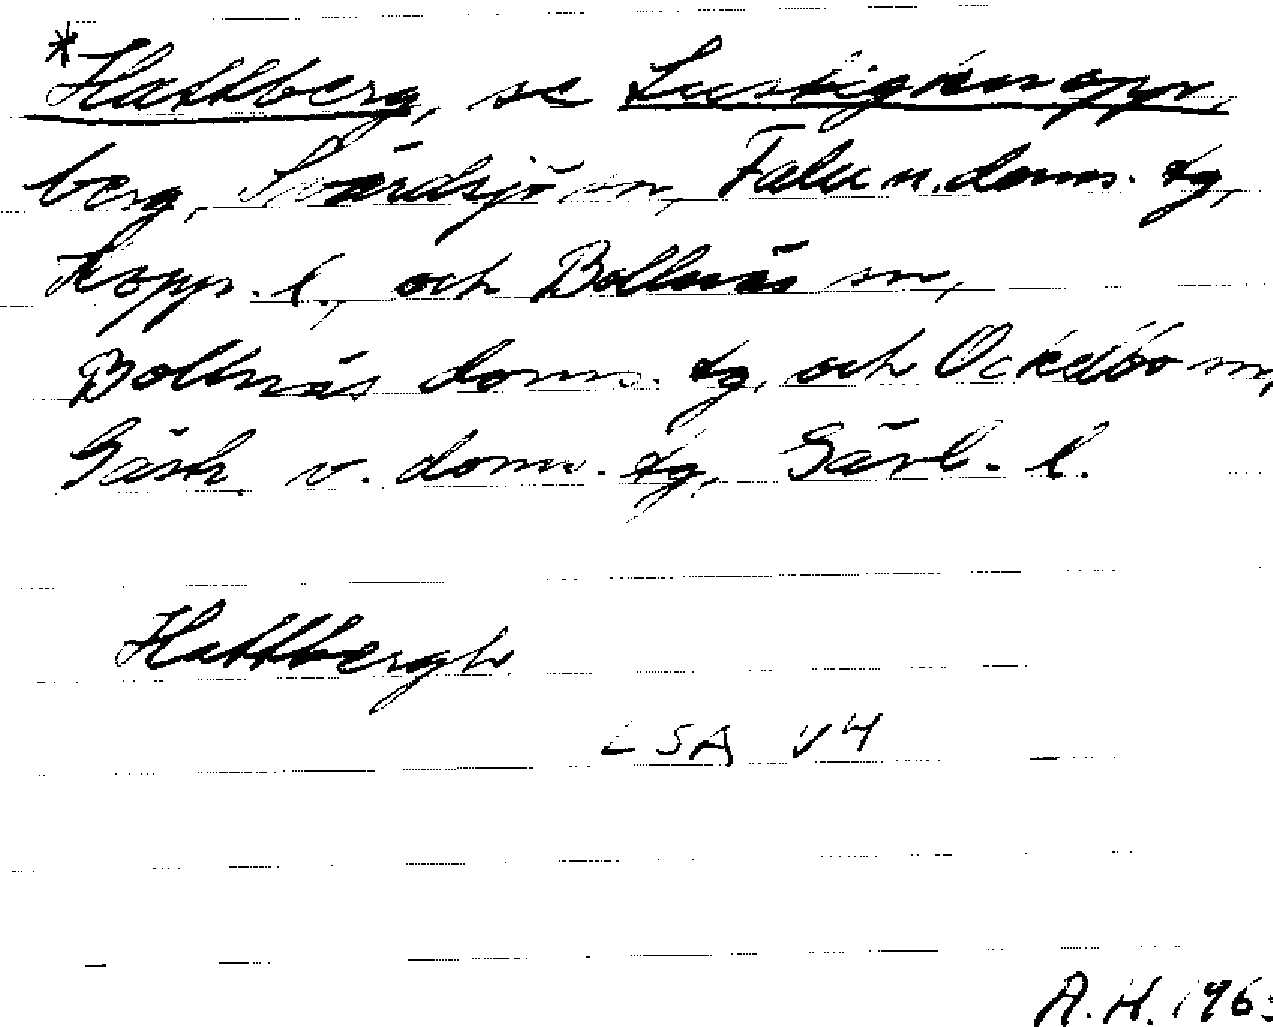 *Hattberg, se Lustigknopp,
berg, Svärdsjö sn, Falu n. doms. tg,
Kopp. l., och Bollnäs sn,
Bollnäs doms. tg, och Ockelbo sn,
Gästr. v. doms. tg, Gävl. l.
Hattbergh
LSA V4
A.H. 196